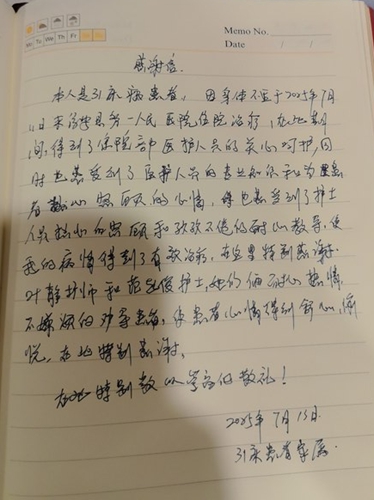 Memo No.
Mo Tu We Th Fr Sa Su
Date / /
感谢信
本人是31床病患者,因身体不适于2025年7月
11日来 县第一人民医院住院治疗,在此期
间,得到了医院部医护人员的关心呵护,同
时也感受到了医护人员的专业知识和为患
者热心照顾的心情,使患者感受到了护士
人员热心的照顾和孜孜不倦的耐心教导,使
我的病情得到了有效治疗,在这里特别感谢
叶静护师和 俊护士,她们俩耐心热情
不嫌烦的 导患者,使患者心情得到舒心,愉
悦,在此特别感谢。
在此特别致以崇高的敬礼!
2025年7月13日
31床患者家属